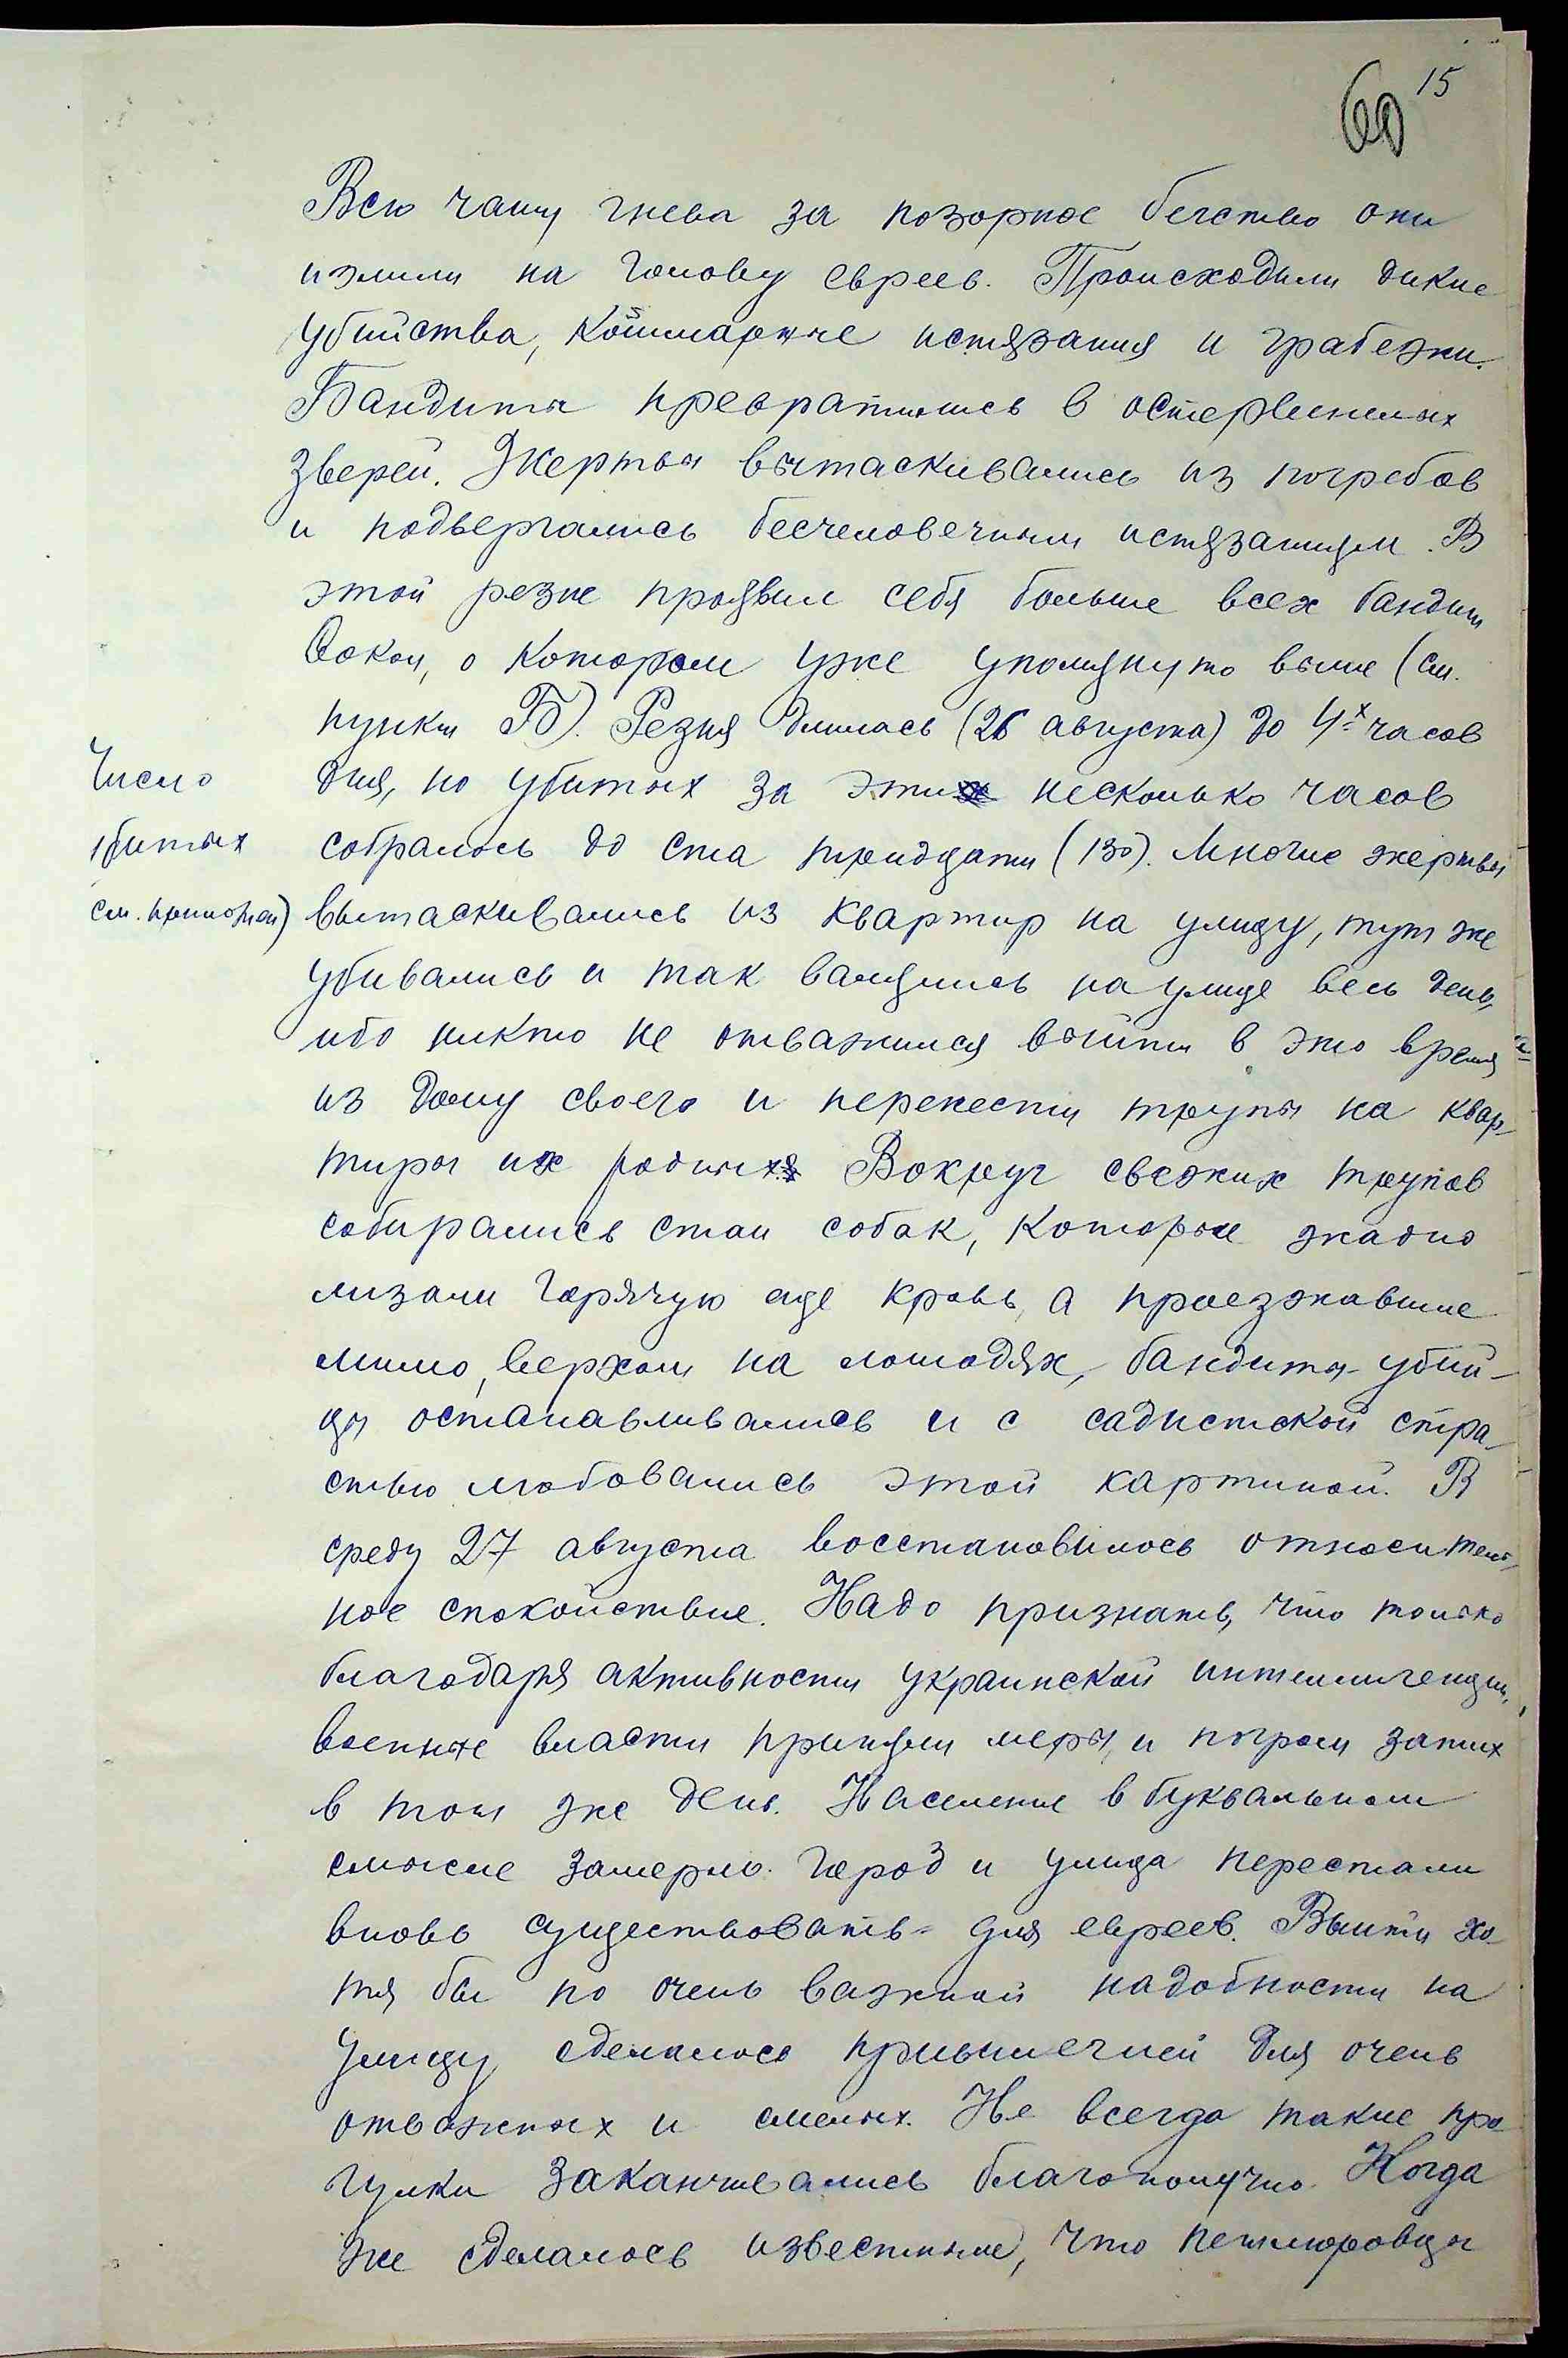 15
60
Всю чашу гнева за позорное бегство они
излили на голову евреев. Происходили дикие
убийства, кошмарные истязания и грабежи.
Бандиты превратились в остервенелых
зверей. Жертвы вытаскивались из погребов
и подвергались бесчеловечным истязаниям. В
этой резне проявил себя больше всех бандит
Сокол, о котором уже упомянуто выше (см.
пункт Б). Резня длилась (26 августа) до 4-х часов
Число
дня, но убитых за эти несколько часов
убитых
собралось до ста тридцати (130). Многие жертвы
см. прилож.)
вытаскивались из квартир на улицу, тут же
убивались и так валялись на улице весь день,
ибо никто не отважился выйти в это время
из дому своего и перенести трупы на квар-
тиры их родных. Вокруг свежих трупов
собирались стаи собак, которые жадно
лизали горячую еще кровь, а проезжавшие
мимо, верхом на лошадях, бандиты-убий-
цы останавливались и с садистской стра-
стью любовались этой картиной. В
среду 27 августа восстановилось относитель-
ное спокойствие. Надо признать, что только
благодаря активности украинской интеллигенции,
военные власти приняли меры, и погром затих
в тот же день. Население в буквальном
смысле замерло. Город и улица перестали
вновь существовать для евреев. Выйти хо-
тя бы по очень важной надобности на
улицу сделалось привилегией для очень
отважных и смелых. Не всегда такие про
гулки заканчивались благополучно. Когда
же сделалось известным, что петлюровцы